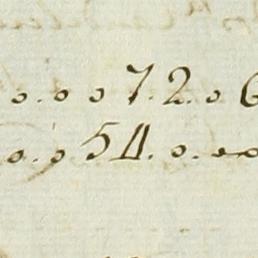 o.o o 7.2.o 6
o.o 54.o.oo